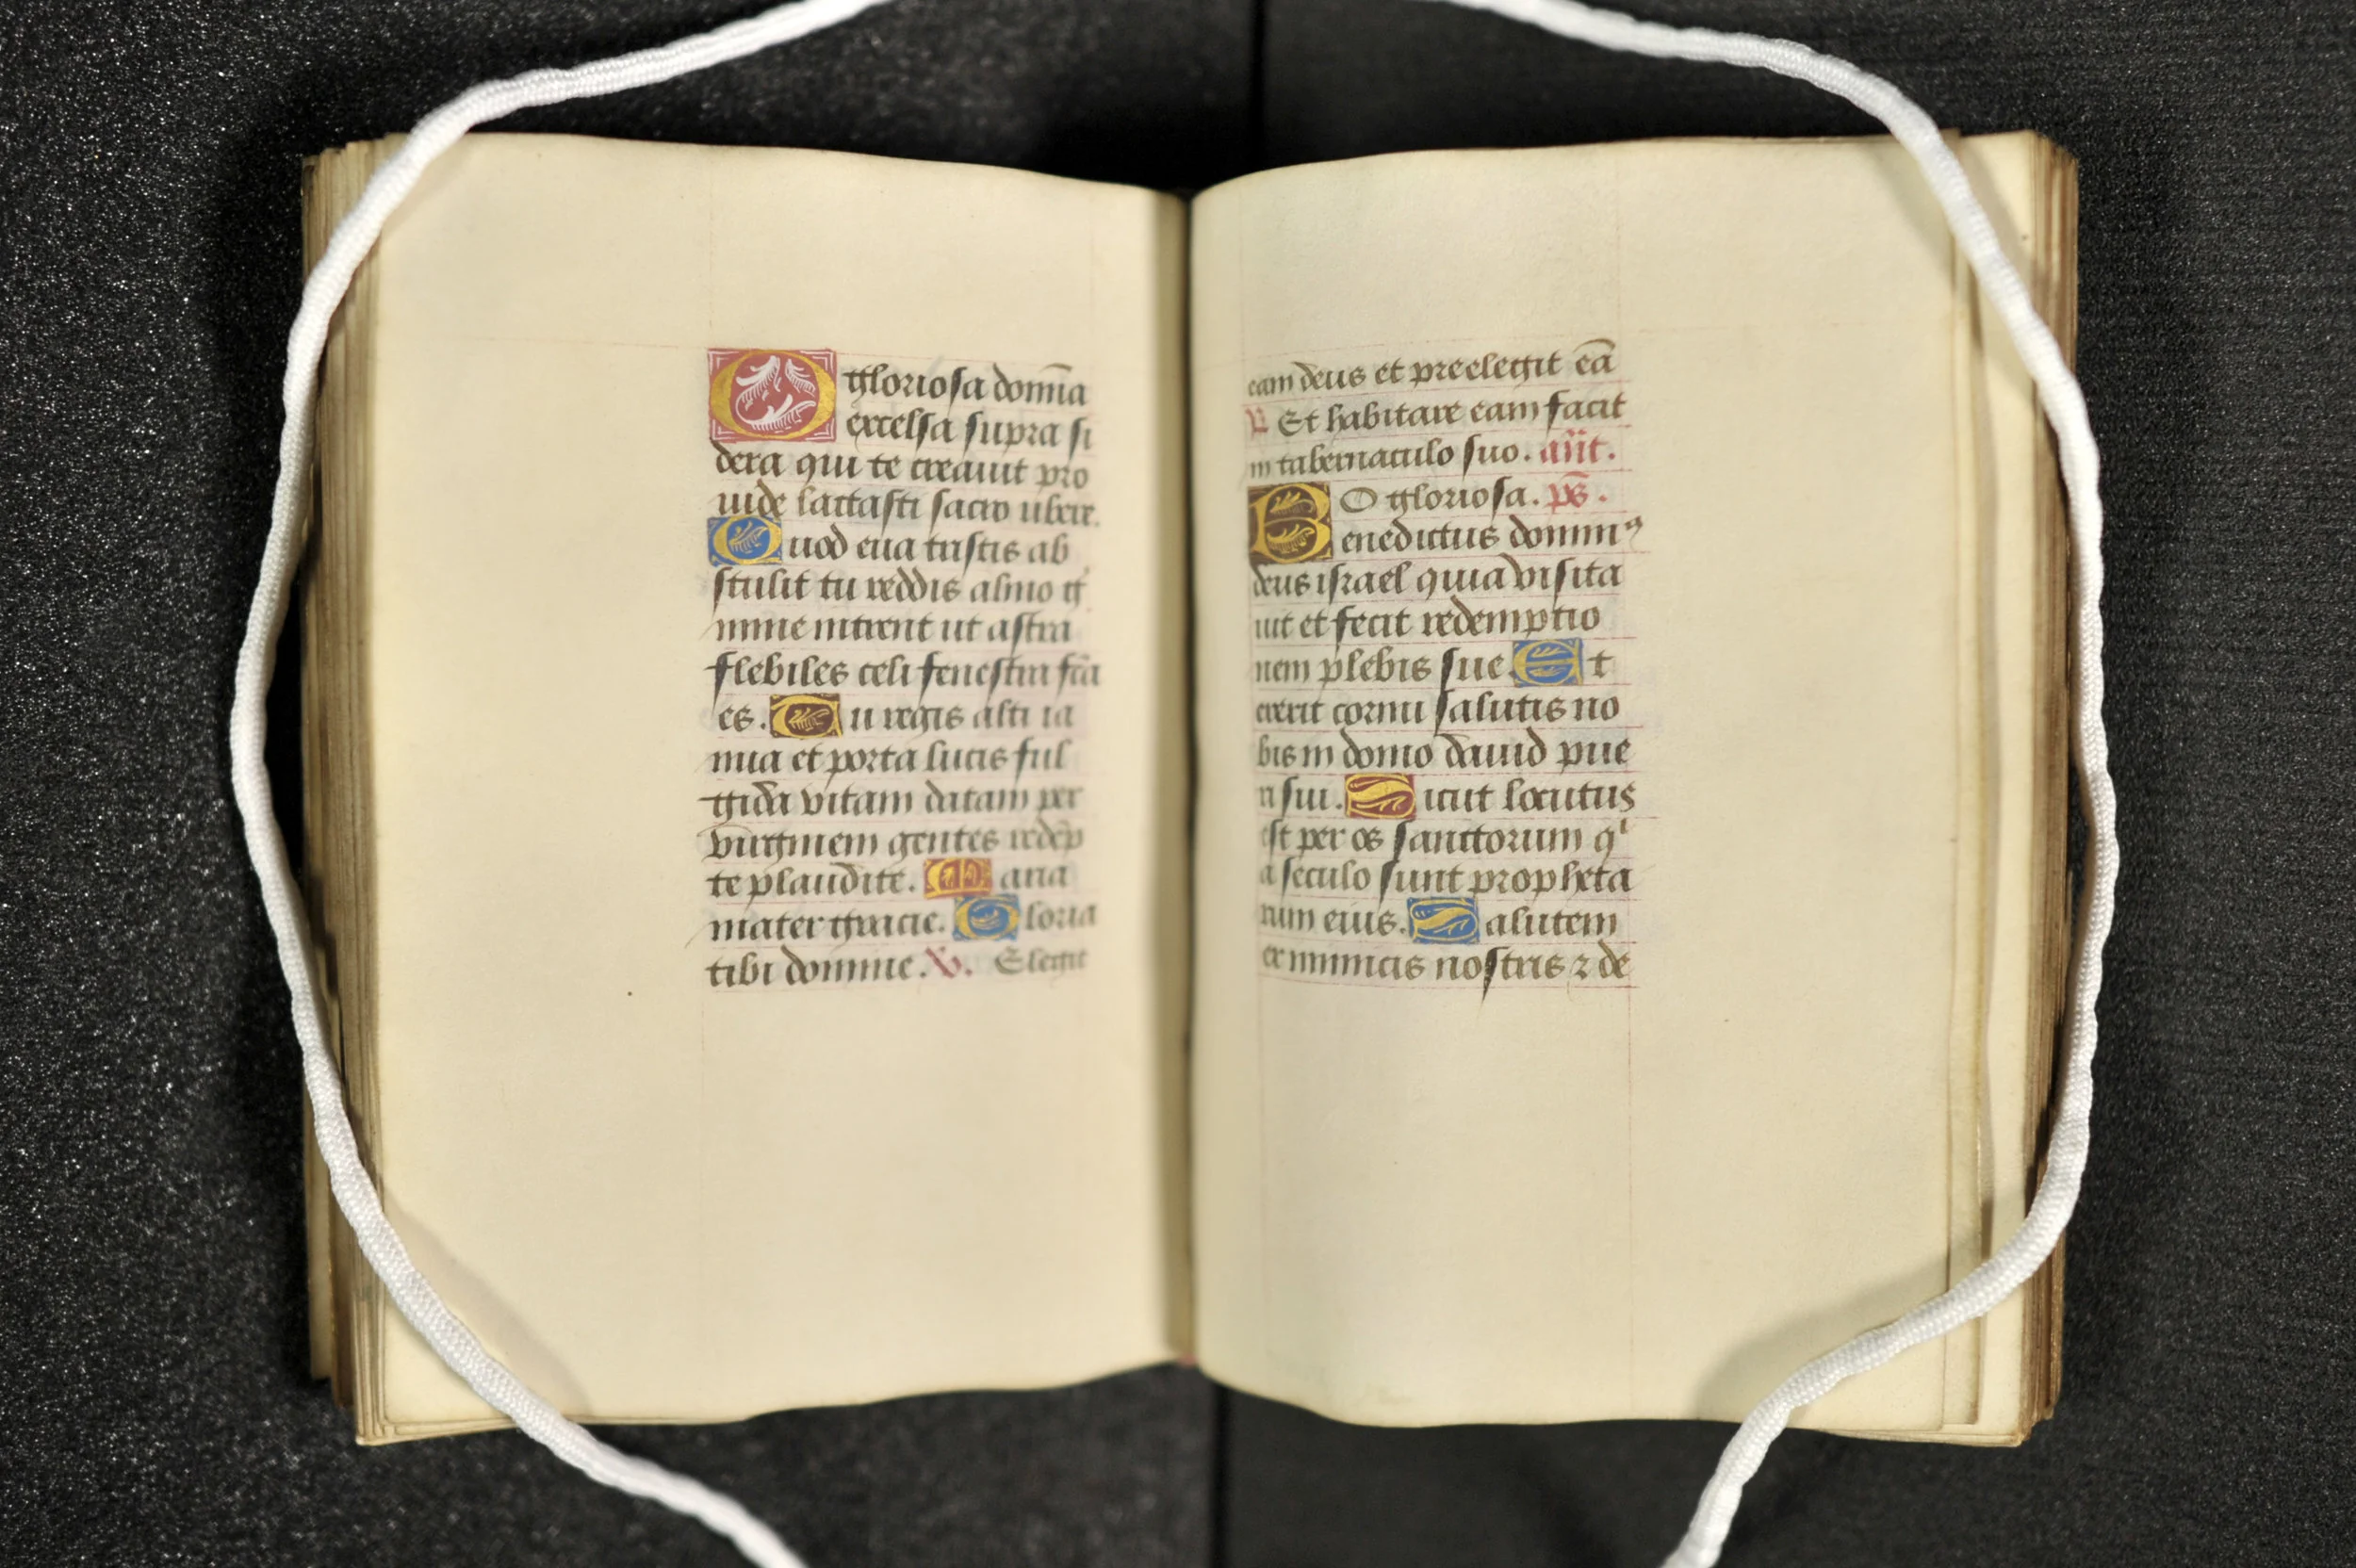 O gloriosa domīa
excelsa supra si
dera qui te creauit pro
uide lactasti sacro ubere.
Quod eua tristis ab
stulit tu reddis almo g̃
mine intrent ut astra
flebiles celi fenestra fc̄a
es. Tu regis alti ia
nua et porta lucis ful
gida vitam datam per
virginem gentes redēp
te plaudite. Maria
mater gracie. Gloria
tibi domine. V. Elegit
eam deus et preelegit eā
R Et habitare eam facit
in tabernaculo suo. an̄t.
O gloriosa. ps̄.
Benedictus dominꝰ
deus israel quia visita
uit et fecit redemptio
nem plebis sue Et
erexit cornu salutis no
bis in domo dauid pue
ri sui. Sicut locutus
est per os sanctorum qͥ
a seculo sunt propheta
rum eius. Salutem
ex inimicis nostris ⁊ de